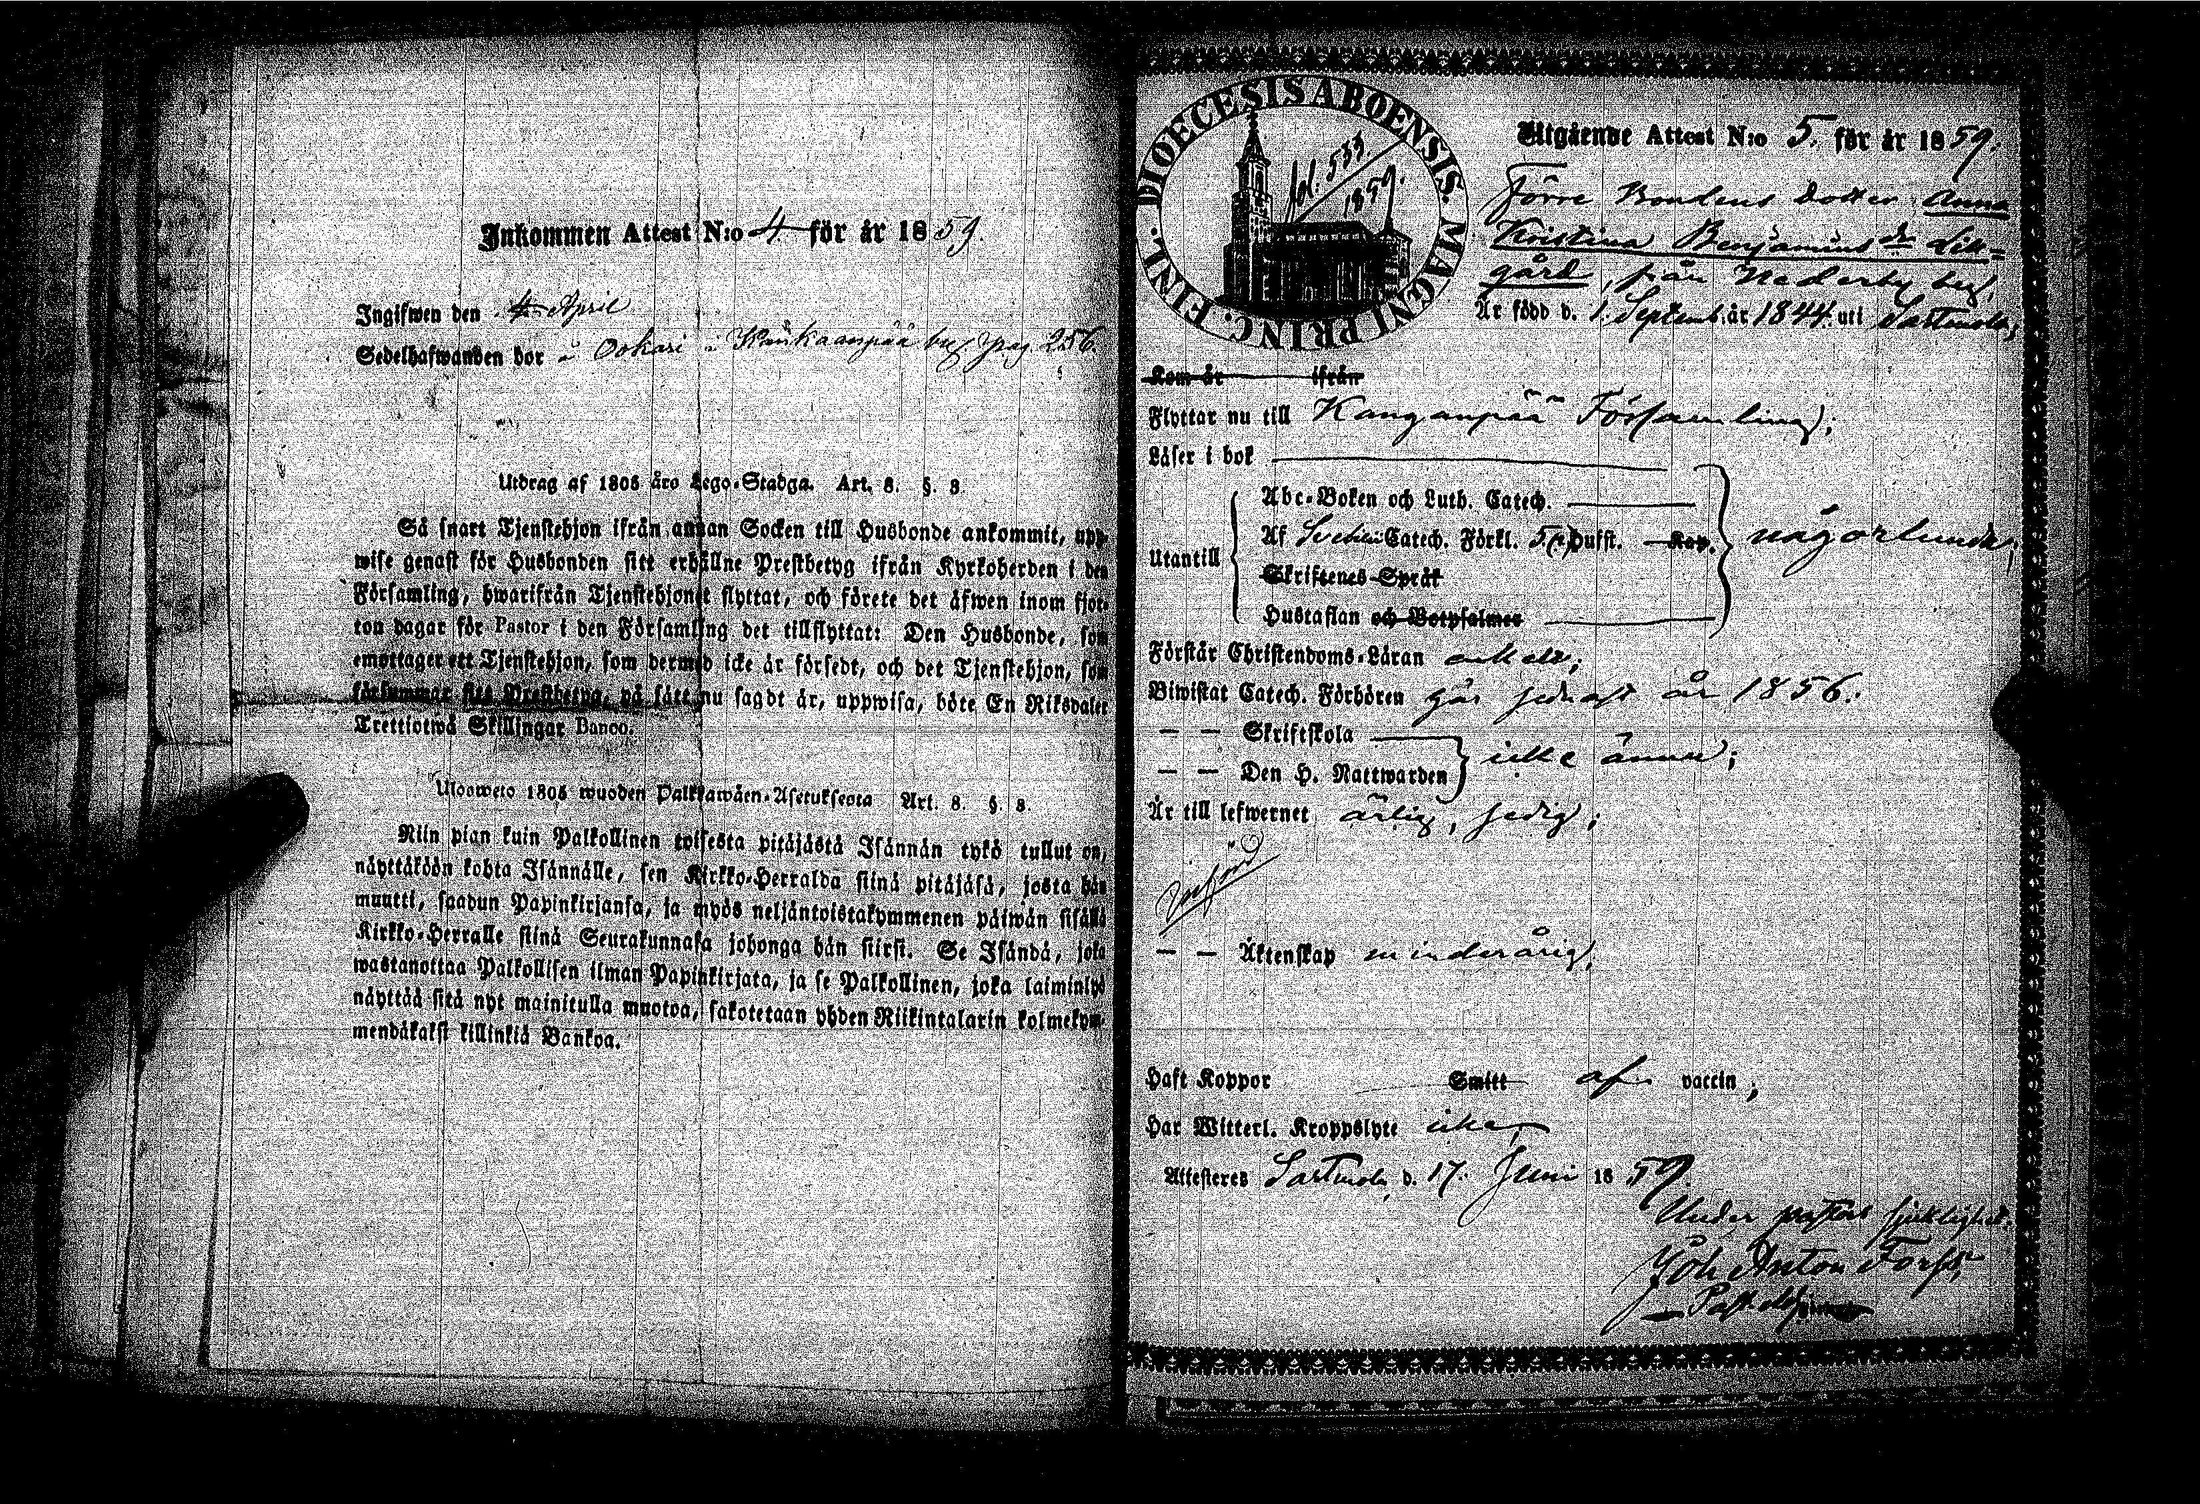 Inkommen Attest N:o 4. för år 1859.
Ingifwen den 4 April
Sedelhafwanden bor å Ookari i Kankaanpää by pag 256.
Utdrag af 1805 års Lego-Stadga. Art. 8. §. 8.
Så snart Tjenstehjon ifrån annan Socken till Husbonde ankommit, upp-
wise genast för Husbonden sitt erhållne Prestbetyg ifrån Kyrkoherden i den
Församling, hwarifrån Tjenstehjonet flyttat, och förete det äfwen inom fjor-
ton dagar för Pastor i den Församling det tillflyttat: Den Husbonde, som
emottager ett Tjenstehjon, som dermed icke är försedt, och det Tjenstehjon, som
försummar sitt Prestbetyg, på sätt nu sagdt är, uppwisa, böte En Riksdaler
Trettiotwå Skillingar Banco.
Ulosweto 1805 wuoden Palkkawäen-Asetuksesta Art. 8. §. 8.
Niin pian kuin Palkollinen toisesta pitäjästä Isännän tykö tullut on,
näyttäköön kohta Isännälle, sen Kirkko-Herralda siinä pitäjäsä, josta hän
muutti, saadun Papinkirjansa, ja myös neljäntoistakymmenen päiwän sisällä
Kirkko-Herralle siinä Seurakunnasa johonga hän siirsi. Se Isändä, joka
wastanottaa Palkollisen ilman Papinkirjata, ja se Palkollinen, joka laiminlyö
näyttää sitä nyt mainitulla muotoa, sakotetaan yhden Riikintalarin kolmekym-
mendäkaksi killinkiä Bankoa.
DIOECESIS ABOENSIS. MAGNI PRINC. FINL.
fol. 533
1859.
Utgående Attest N:o 5. för år 1859.
Förre Bondens dotter Anna
Kristina Benjaminsdr Lill-
gård, från Nederby by,
Är född d. 1. Septemb. år 1844. uti Sastmola;
Kom år ifrån
Flyttar nu till Kanganpää Församling;
Läser i bok
Abc-Boken och Luth. Catech.
Utantill Af Svebilii Catech. Förkl. Hufst. Kap. någorlunda;
Skriftenes Språk
Hustaflan och Botpsalmer
Förstår Christendoms-Läran enkelt;
Biwistat Catech. Förhören år 1856.
— — Skriftskola
— — Den H. Nattwarden icke ännu;
Är till lefwernet ärlig, sedig;
— — Äktenskap minderårig,
Haft Koppor Smitt af vaccin;
Har Witterl. Kroppslyte icke,
Attesteres Sastmola, d. 17. Juni 1859.
Under pastors sjuklighet.
Joh Anton Forss,